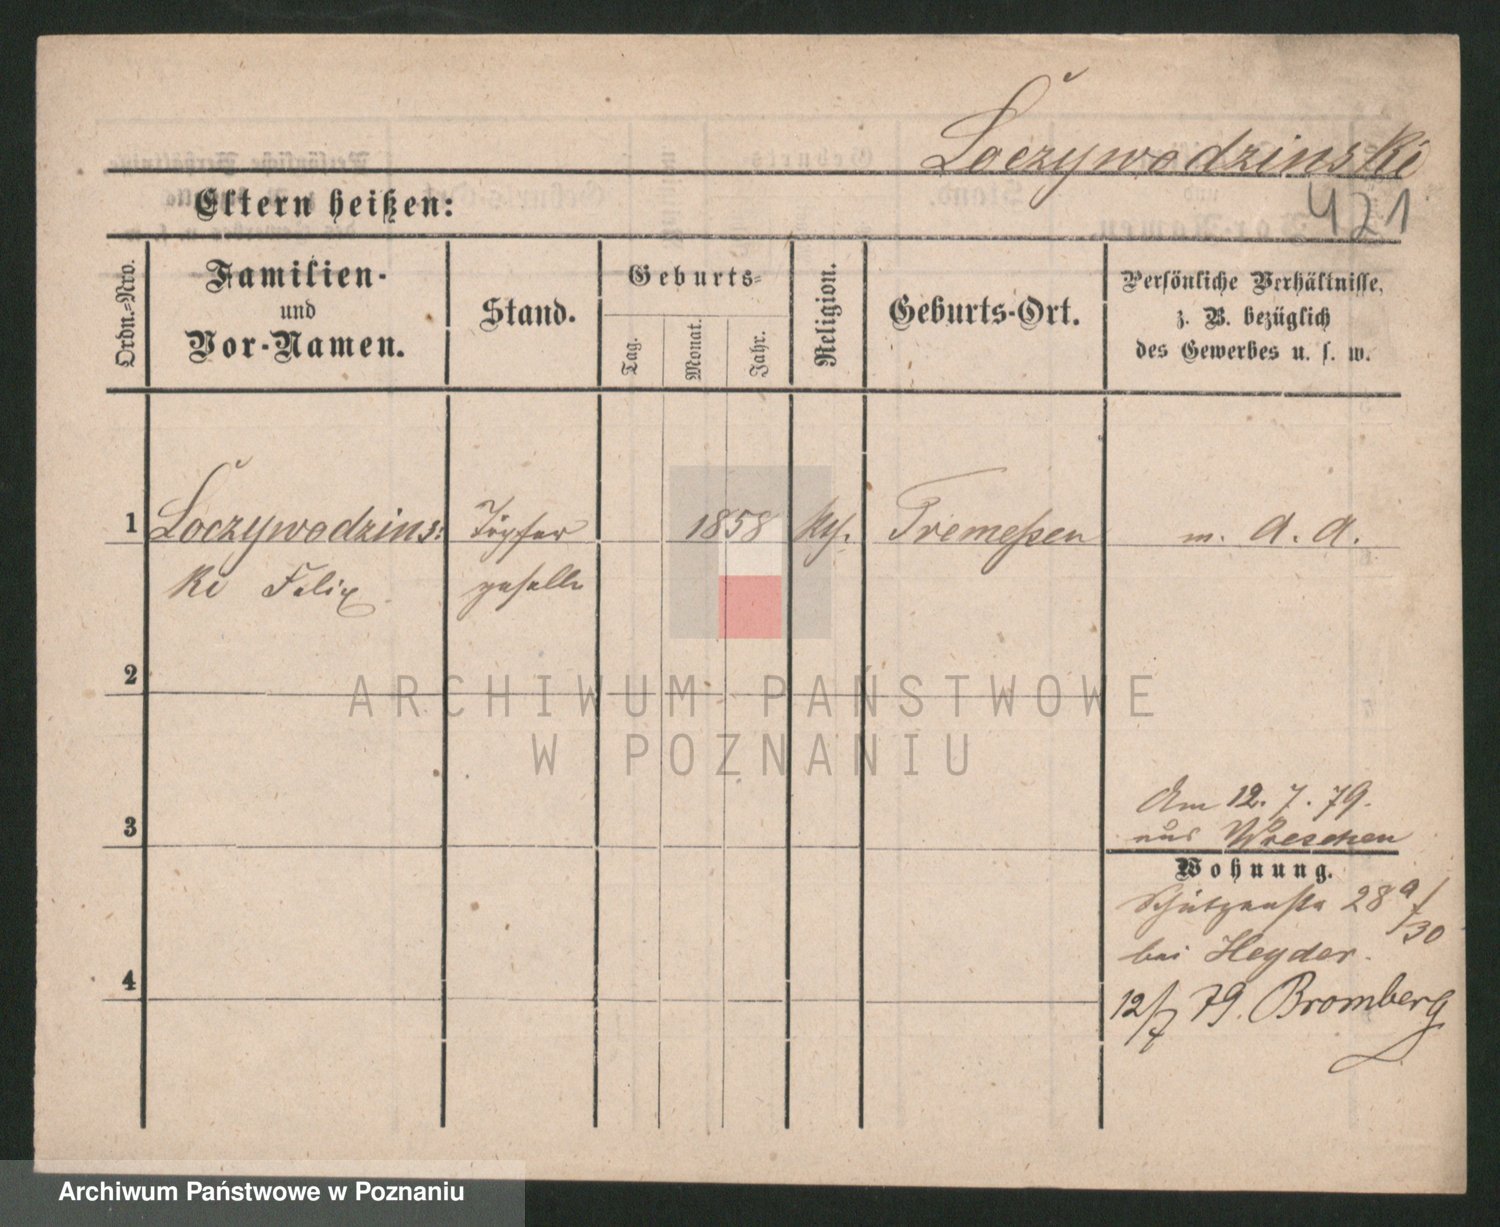 Loczywodzinski
421
Eltern heißen:
Ordn.-Nro.
Familien-
und
Vor-Namen.
Stand.
Geburts-
Tag.
Monat.
Jahr.
Religion.
Geburts-Ort.
Persönliche Verhältnisse,
z. B. bezüglich
des Gewerbes u. s. w.
1 Loczywodzins: Töpfer 1858 kth. Tremeßen m. A. A.
ki Felix geselle
2
3
4
Am 12. 7. 79.
aus Wreschen
Wohnung.
Schützenstr 28 a/30
bei Heyder.
12/7 79. Bromberg
ARCHIWUM PAŃSTWOWE
W POZNANIU
Archiwum Państwowe w Poznaniu